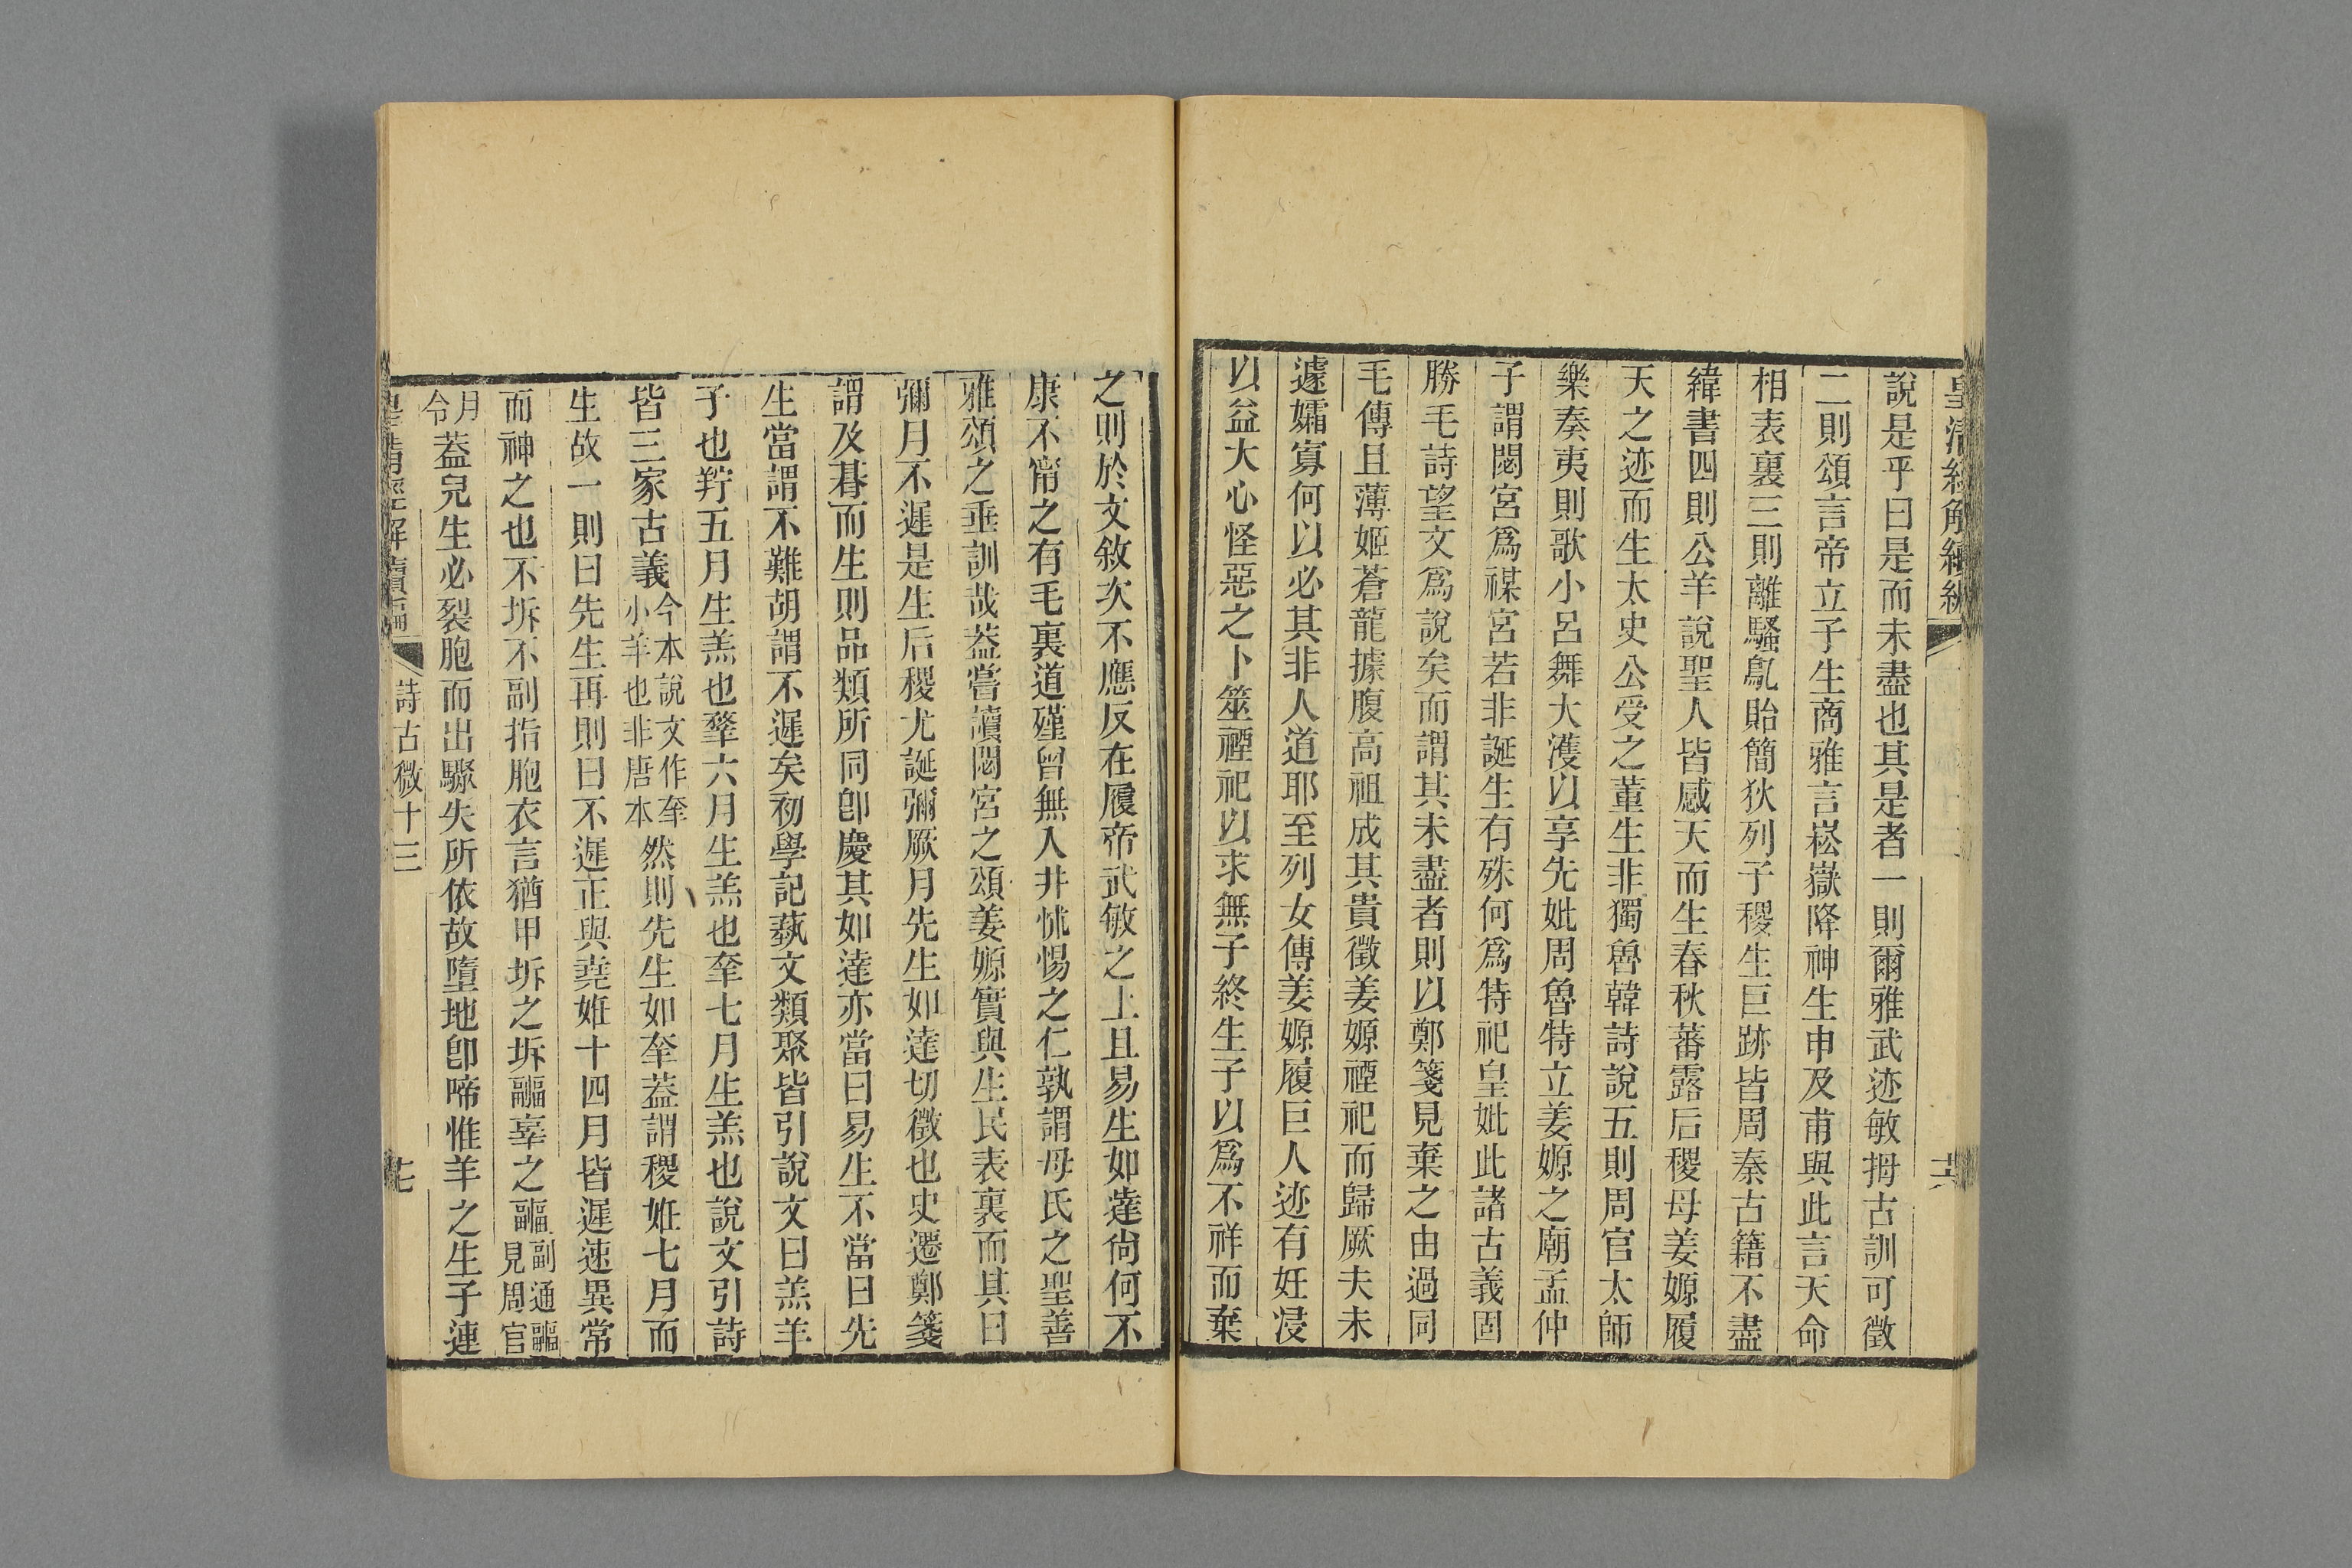 皇清經解續編
十六
說是乎曰是而未盡也其是者一則爾雅武迹敏拇古訓可徵
二則頌言帝立子生商雅言崧嶽降神生申及甫與此言天命
相表裏三則離騷鳦貽簡狄列子稷生巨跡皆周秦古籍不盡
緯書四則公羊說聖人皆感天而生春秋蕃露后稷母姜嫄履
天之迹而生太史公受之董生非獨魯韓詩說五則周官太師
樂奏夷則歌小呂舞大濩以享先妣周魯特立姜嫄之廟孟仲
子謂閟宮爲禖宮若非誕生有殊何爲特祀皇妣此諸古義固
勝毛詩望文爲說矣而謂其未盡者則以鄭箋見棄之由過同
毛傳且薄姬蒼龍據腹高祖成其貴徵姜嫄禋祀而歸厥夫未
遽孀寡何以必其非人道耶至列女傳姜嫄履巨人迹有妊浸
以益大心怪惡之卜筮禋祀以求無子終生子以爲不祥而棄
之則於文敘次不應反在履帝武敏之上且易生如達尙何不
康不甯之有毛裏道殣曾無入井怵惕之仁孰謂母氏之聖善
雅頌之垂訓哉葢嘗讀閟宮之頌姜嫄實與生民表裏而其曰
彌月不遲是生后稷尤誕彌厥月先生如達切徵也史遷鄭箋
謂及朞而生則品類所同卽慶其如達亦當曰易生不當曰先
生當謂不難胡謂不遲矣初學記蓺文類聚皆引說文曰羔羊
子也羜五月生羔也䍮六月生羔也羍七月生羔也說文引詩
皆三家古義今本說文作羍小羊也非唐本然則先生如羍葢謂稷姙七月而
生故一則曰先生再則曰不遲正與堯姙十四月皆遲速異常
而神之也不坼不副指胞衣言猶甲坼之坼疈辜之疈副通疈見周官
月令葢兒生必裂胞而出驟失所依故墮地卽啼惟羊之生子連
皇清經解續編
詩古微十三
十七